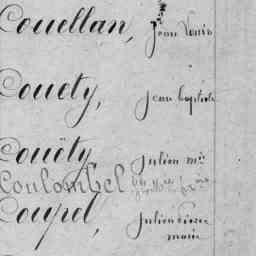 Couellan, Jean Louis
Couety, Jean baptiste
Couëty, Julien m^ie
Coulombel
Coupel, Julien
marie